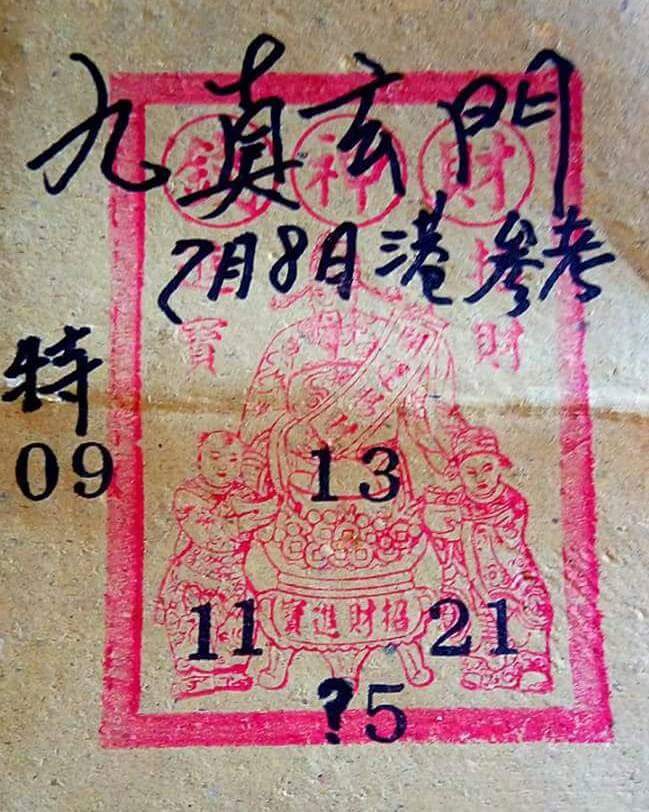 九真玄門
財神
7月8日港參考
招財
進寶
特
09
13
11
21
寶進財招
?5